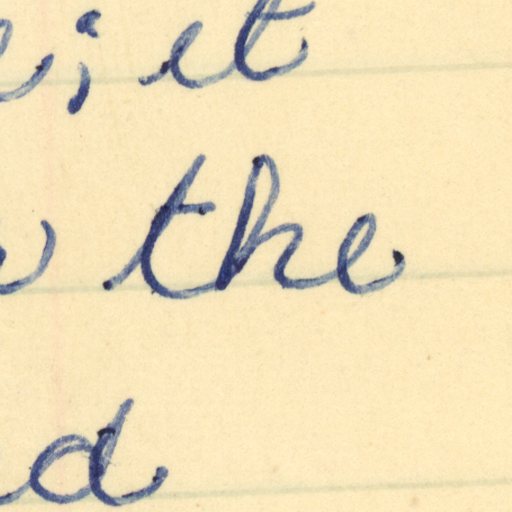 ; it
the
d